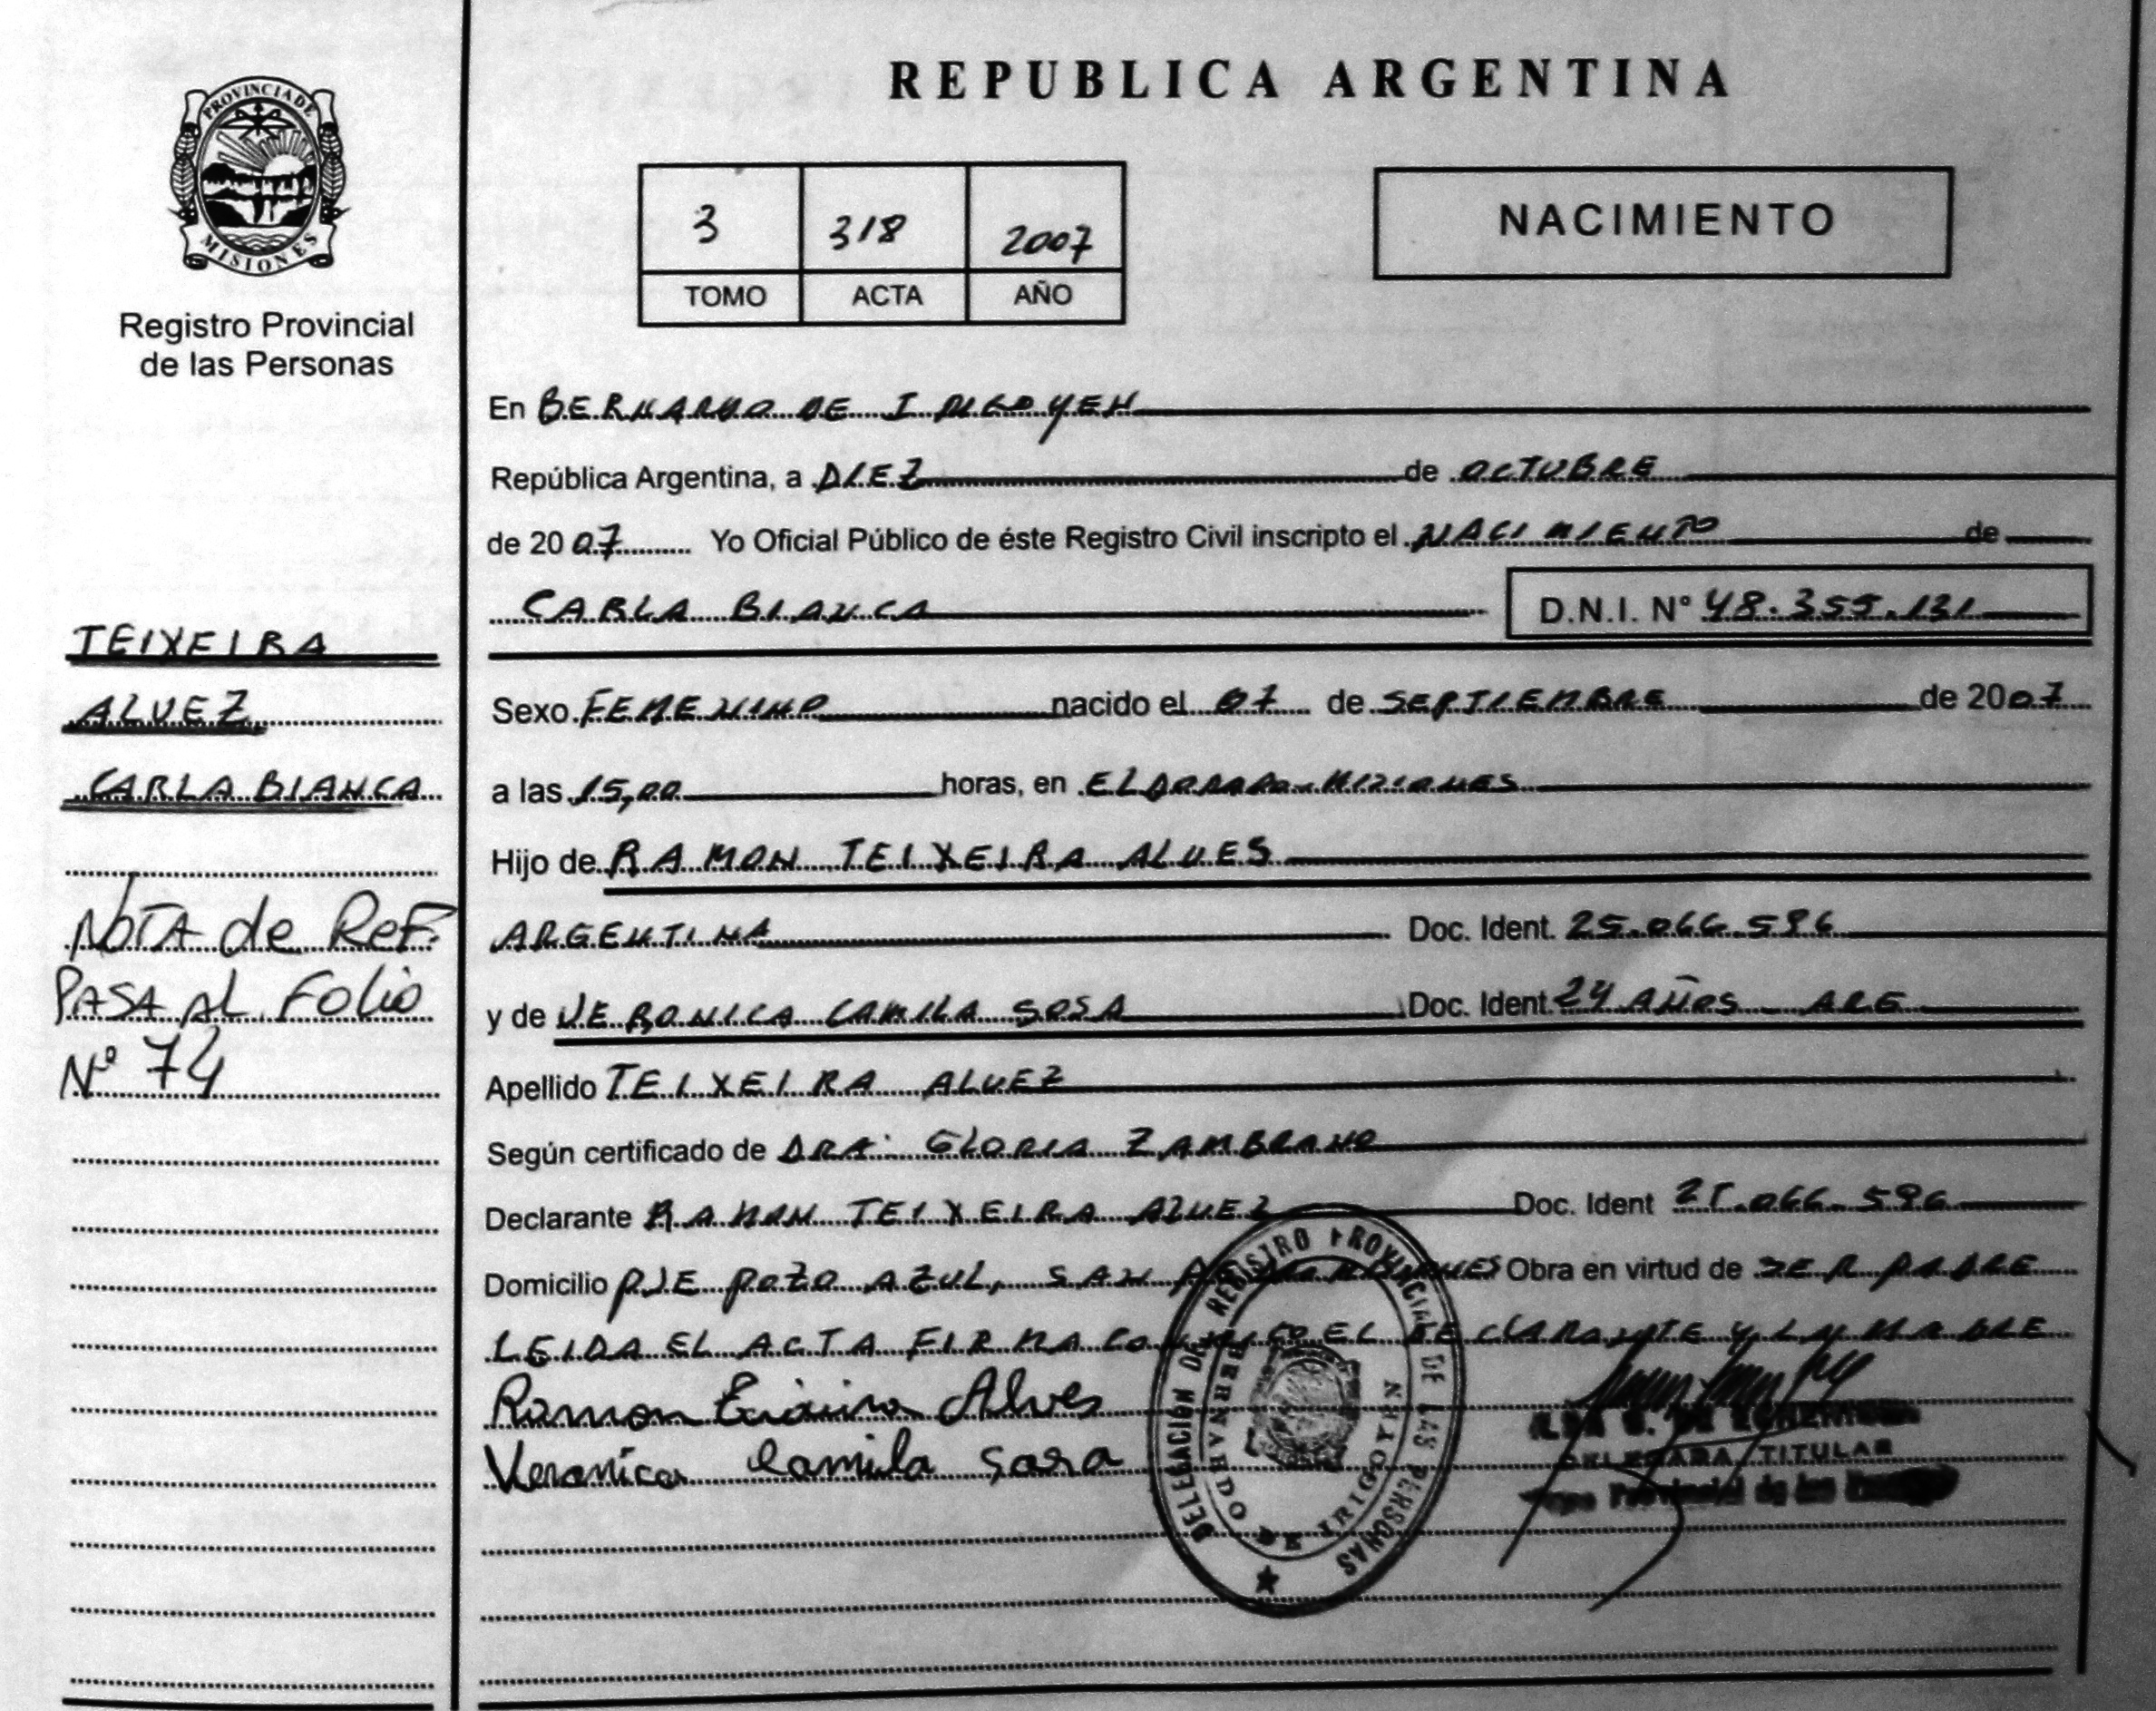 PROVINCIA DE
MISIONES
Registro Provincial
de las Personas
TEIXEIRA
ALVEZ
CARLA BIANCA
NOTA de REF.
PASA AL Folio
Nº 74
REPUBLICA ARGENTINA
3 318 2007
TOMO ACTA AÑO
NACIMIENTO
En BERNARDO DE IRIGOYEN
República Argentina, a DIEZ de OCTUBRE
de 2007 Yo Oficial Público de éste Registro Civil inscripto el NACIMIENTO de
CARLA BIANCA D.N.I. N° 48.355.131
Sexo FEMENINO nacido el 07 de SEPTIEMBRE de 2007
a las 15,00 horas, en ELDORADO-MISIONES
Hijo de RAMON TEIXEIRA ALVES
ARGENTINA Doc. Ident. 25.066.596
y de VERONICA CAMILA SOSA Doc. Ident. 24 AÑOS ARG
Apellido TEIXEIRA ALVEZ
Según certificado de DRA. GLORIA ZAMBRANO
Declarante RAMON TEIXEIRA ALVEZ Doc. Ident 25.066.596
Domicilio PJE POZO AZUL, SAN Obra en virtud de SER PADRE
LEIDA EL ACTA FIRMA EL DECLARANTE Y LA MADRE
Ramon Teixeira Alves
Veronica Camila Sosa
DELEGACIÓN DEL REGISTRO PROVINCIAL DE LAS PERSONAS
BERNARDO DE IRIGOYEN
DELEGADA TITULAR
Provincial de las